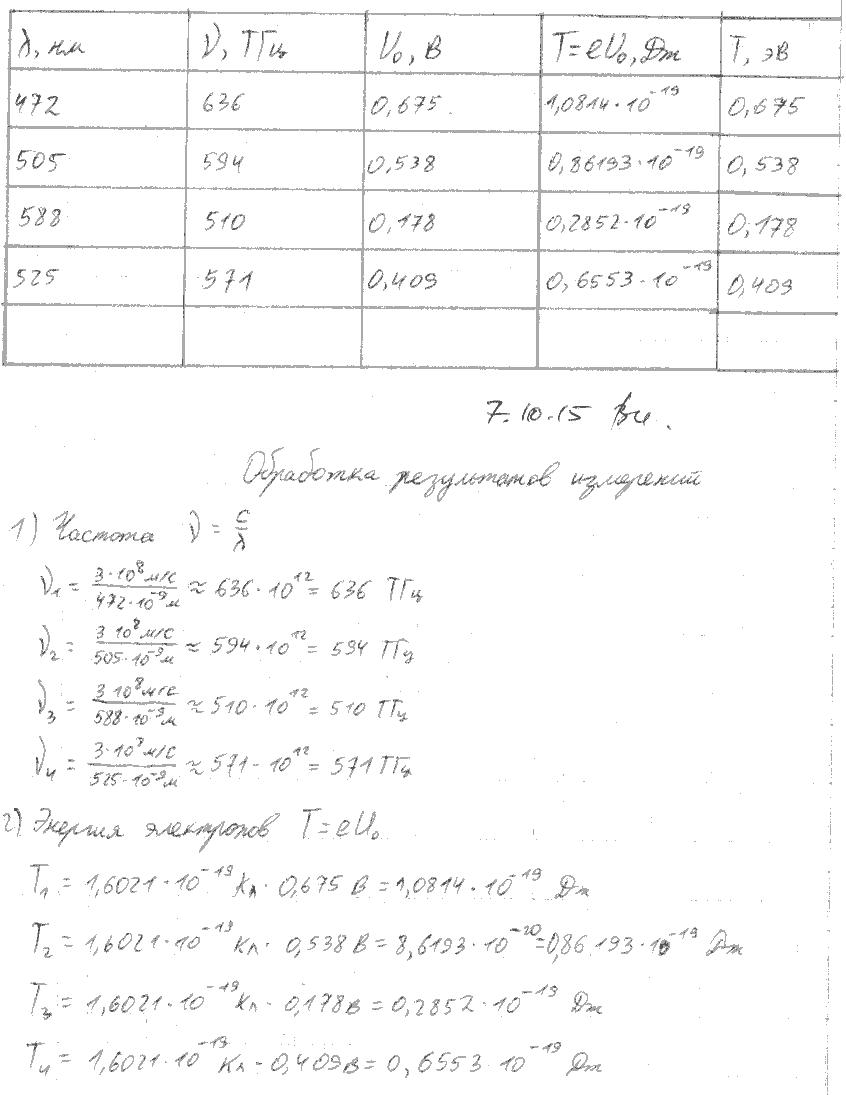 λ, нм ν, ТГц U₀, В T=eU₀, Дж T, эВ
472 636 0,675 1,0814·10⁻¹⁹ 0,675
505 594 0,538 0,86193·10⁻¹⁹ 0,538
588 510 0,178 0,2852·10⁻¹⁹ 0,178
525 571 0,409 0,6553·10⁻¹⁹ 0,409
7.10.15
Обработка результатов измерений
1) Частота ν = c/λ
ν₁ = 3·10⁸м/с / 472·10⁻⁹м ≈ 636·10¹² = 636 ТГц
ν₂ = 3 10⁸м/с / 505·10⁻⁹м ≈ 594·10¹² = 594 ТГц
ν₃ = 3 10⁸м/с / 588·10⁻⁹м ≈ 510·10¹² = 510 ТГц
ν₄ = 3·10⁸м/с / 525·10⁻⁹м ≈ 571·10¹² = 571 ТГц
2) Энергия электронов T=eU₀
T₁ = 1,6021·10⁻¹⁹ Кл· 0,675 В = 1,0814·10⁻¹⁹ Дж
T₂ = 1,6021·10⁻¹⁹ Кл· 0,538 В = 8,6193·10⁻²⁰ = 0,86193·10⁻¹⁹ Дж
T₃ = 1,6021·10⁻¹⁹ Кл· 0,178 В = 0,2852·10⁻¹⁹ Дж
T₄ = 1,6021·10⁻¹⁹ Кл· 0,409 В = 0,6553·10⁻¹⁹ Дж